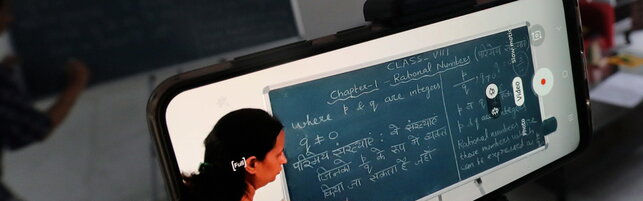 CLASS-VIII
Chapter-1 Rational Numbers (परिमेय
where p & q are integers
q ≠ 0
परिमेय संख्याएं: वे संख्याएं
जिनको p/q के रूप में व्यक्त
किया जा सकता है जहाँ
p/q, q ≠ 0
p व q
p & q are integers
Rational numbers are
those numbers which
can be expressed as
[Full]
slow motion
Video
Photo